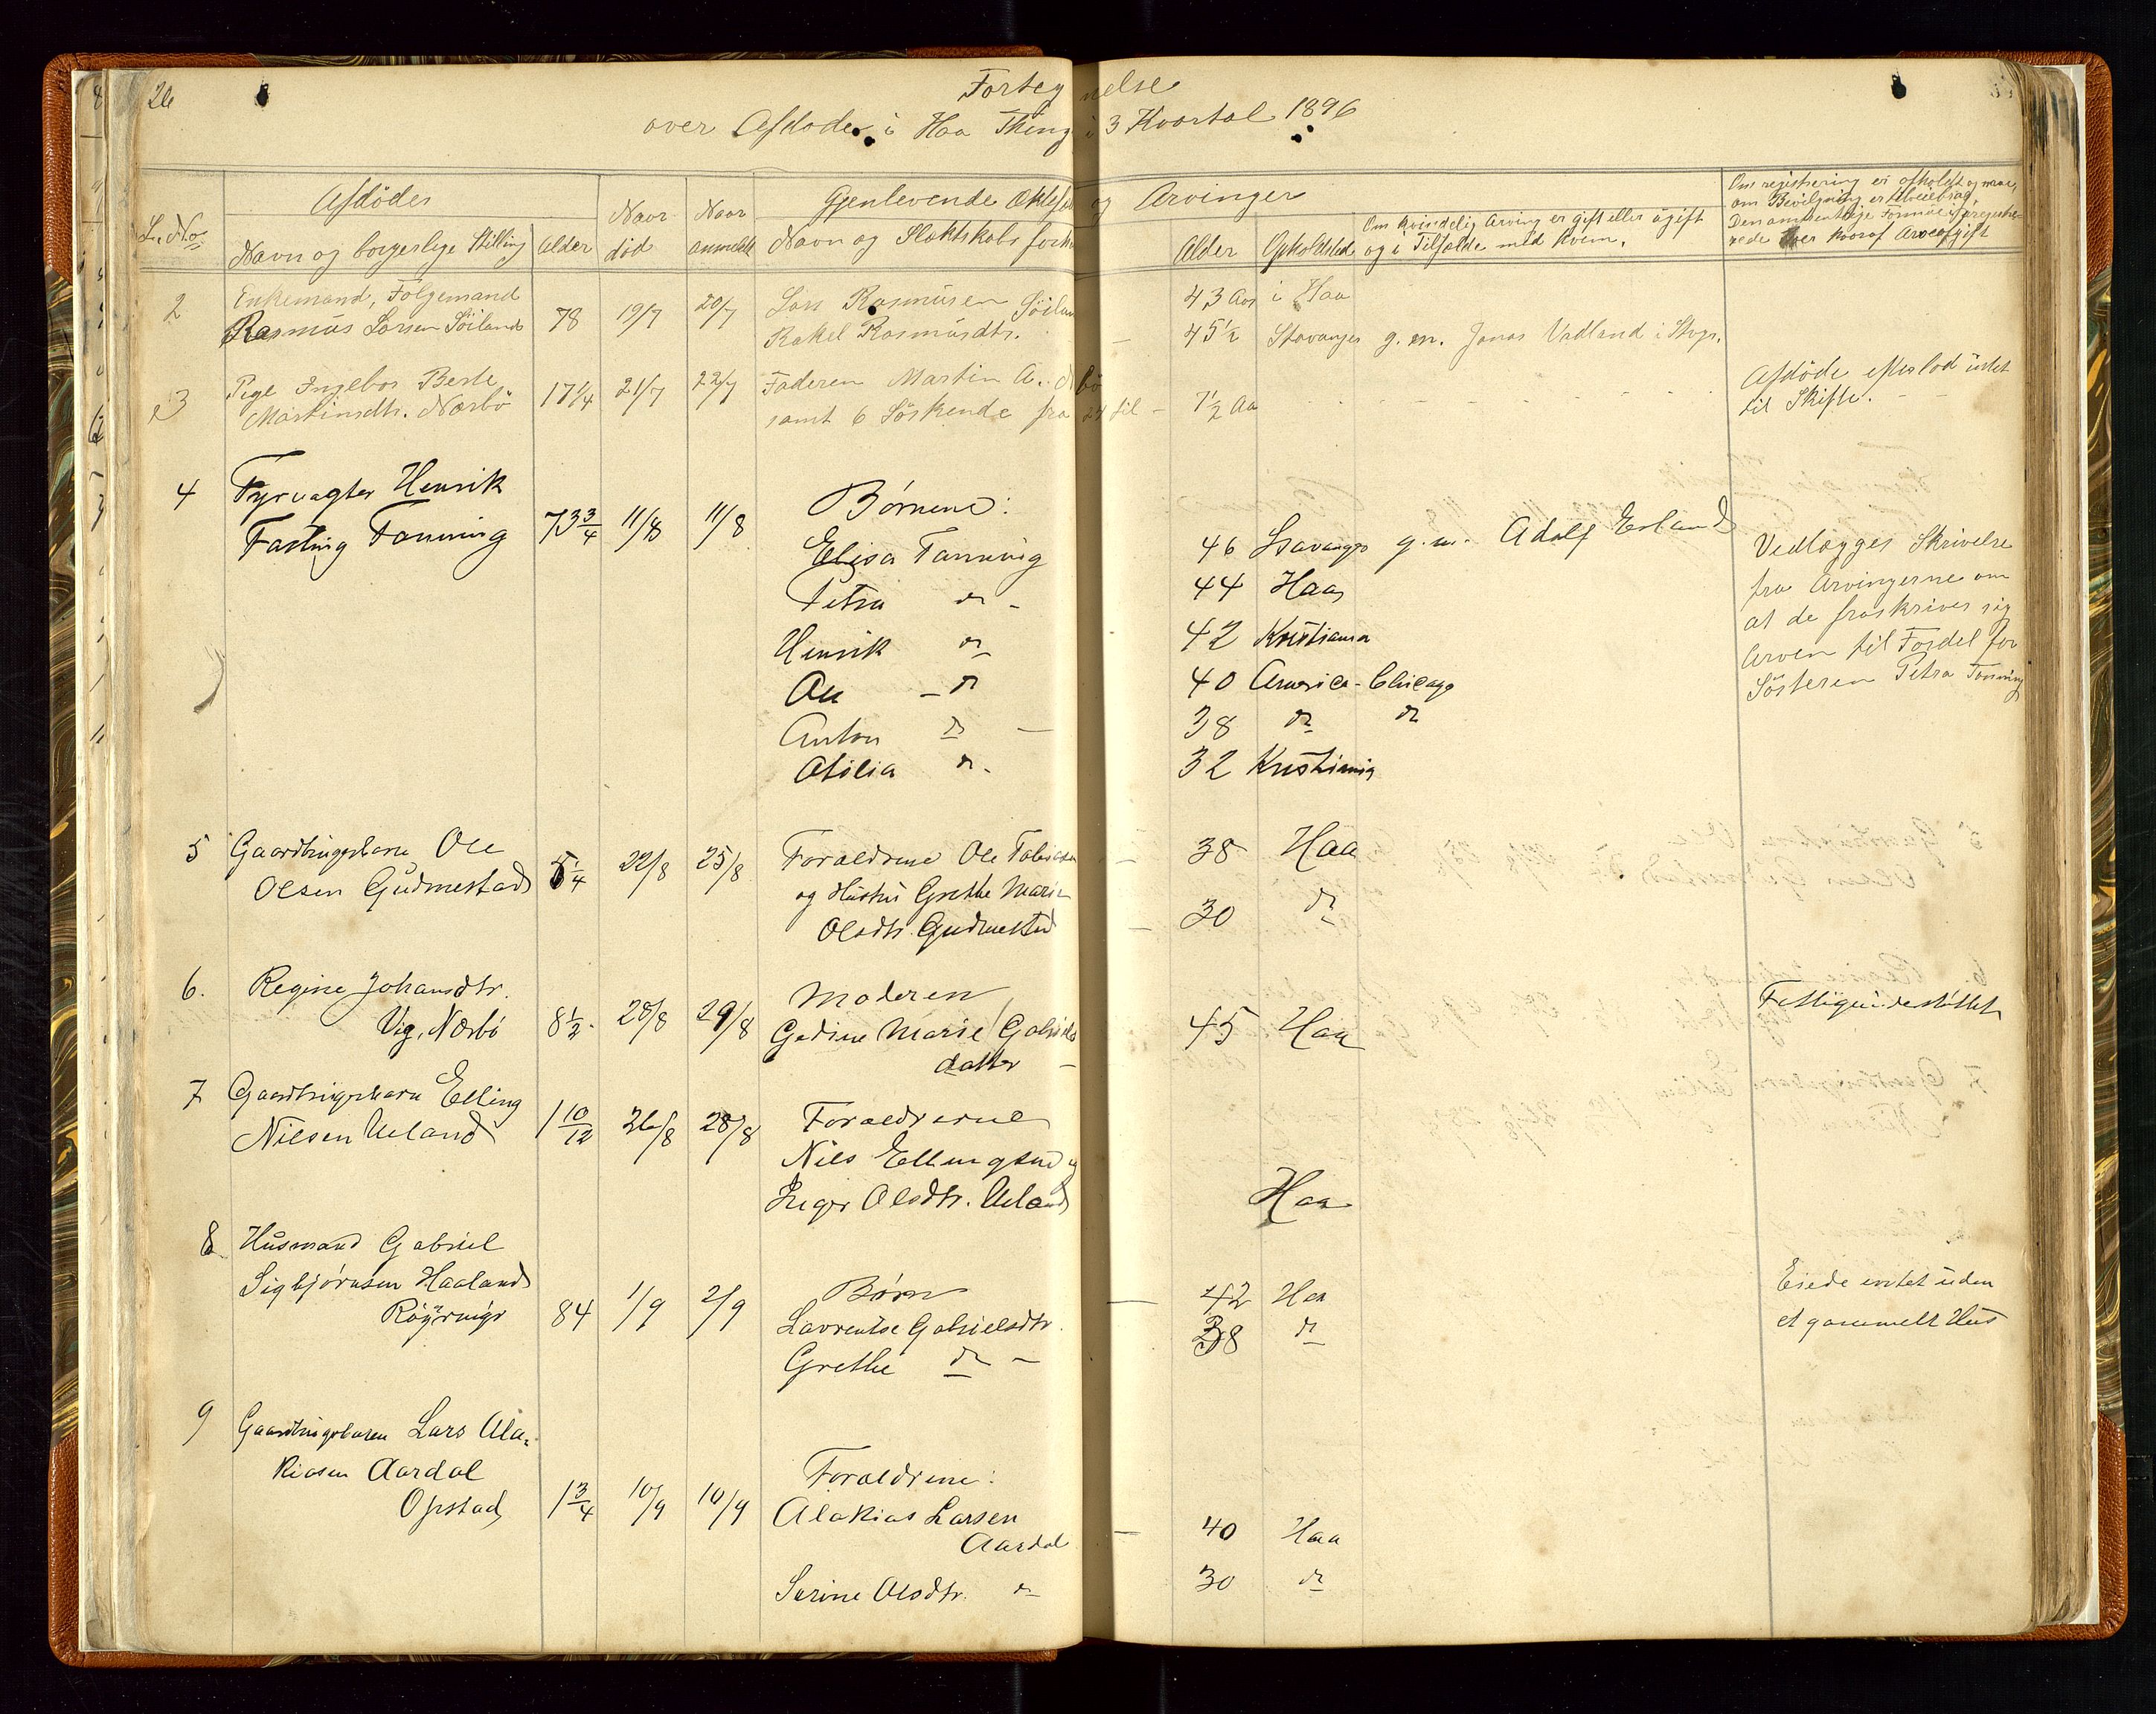 26
Forteg nelse
over Afdøde i Haa Thing i 3 Kvartal 1896
L. No
Afdödes
Navn og borgerlige Stilling
Alder
Naar död
Naar anmeldt
Gjenlevende Ektefæl og Arvinger
Navn og Slektskabs forh
Alder
Opholdsted
Om kvindelig Arving er gift eller ugift
og i Tilfælde med hvem.
Om registrering er afholdt og naar,
om Bevilgning er
rede eller hvoraf Arveafgift
2 Enkemand, Folgemand
Rasmus Larsen Söiland 78 19/7 20/7 Lars Rasmusen Söilan 43 Aar i Haa
Rakel Rasmusdtr. - 45½ Stavanger g. m. Jonas Vadland i Stvgr.
3 Pige Ingebor Berte
Martinsdtr. Nærbö 17¼ 21/7 22/7 Faderen Martin A.
samt 6 Söskende fra 24 til - 7½ Aa
Afdöde efterlod intet
til Skifte.
4 Fyrvagter Henrik
Fasting Fanning 73¾ 11/8 11/8 Børnene:
Elisa Tanning 46 Stavanger g. m. Adolf Erland
Petra do - 44 Haa
Henrik do 42 Kristiania
Ole - do 40 America - Chicago
Anton do - 38 do do
Otilia do. 32 Kristiania
Vedlægges Skrivelse
fra Arvingerne om
at de fraskriver sig
Arven til Fordel for
Søsteren Petra Tonning
5 Gaardbrugerbarn Ole
Olsen Gudmestad 5¼ 22/8 25/8 Forældrene Ole Tobiasen - 38 Haa
og Hustru Grethe Marie
Olsdtr. Gudmestad - 30 do
6. Regine Johansdtr.
Vig, Nærbö 8½ 28/8 29/8 Moderen
Gedine Marie Gabriels
datter - 45 Haa
Fattigunderstöttet
7 Gaardbrugerbarn Elling
Nilsen Ueland 1 10/12 26/8 28/8 Forældrerne
Nils Ellingsen og
Inger Olsdtr. Ueland Haa
8 Husmand Gabriel
Sigbjørnsen Haaland
84 1/9 2/9 Børn
Lavrentse Gabrielsdtr. - 42 Haa
Grethe do - 38 do
Eiede intet uden
et gammelt Hus
9 Gaardbrugerbarn Lars Ala-
kiasen Aardal
Opstad 1¾ 10/9 10/9 Forældrene:
Alakias Larsen
Aardal - 40 Haa
Serine Olsdtr. do 30 do